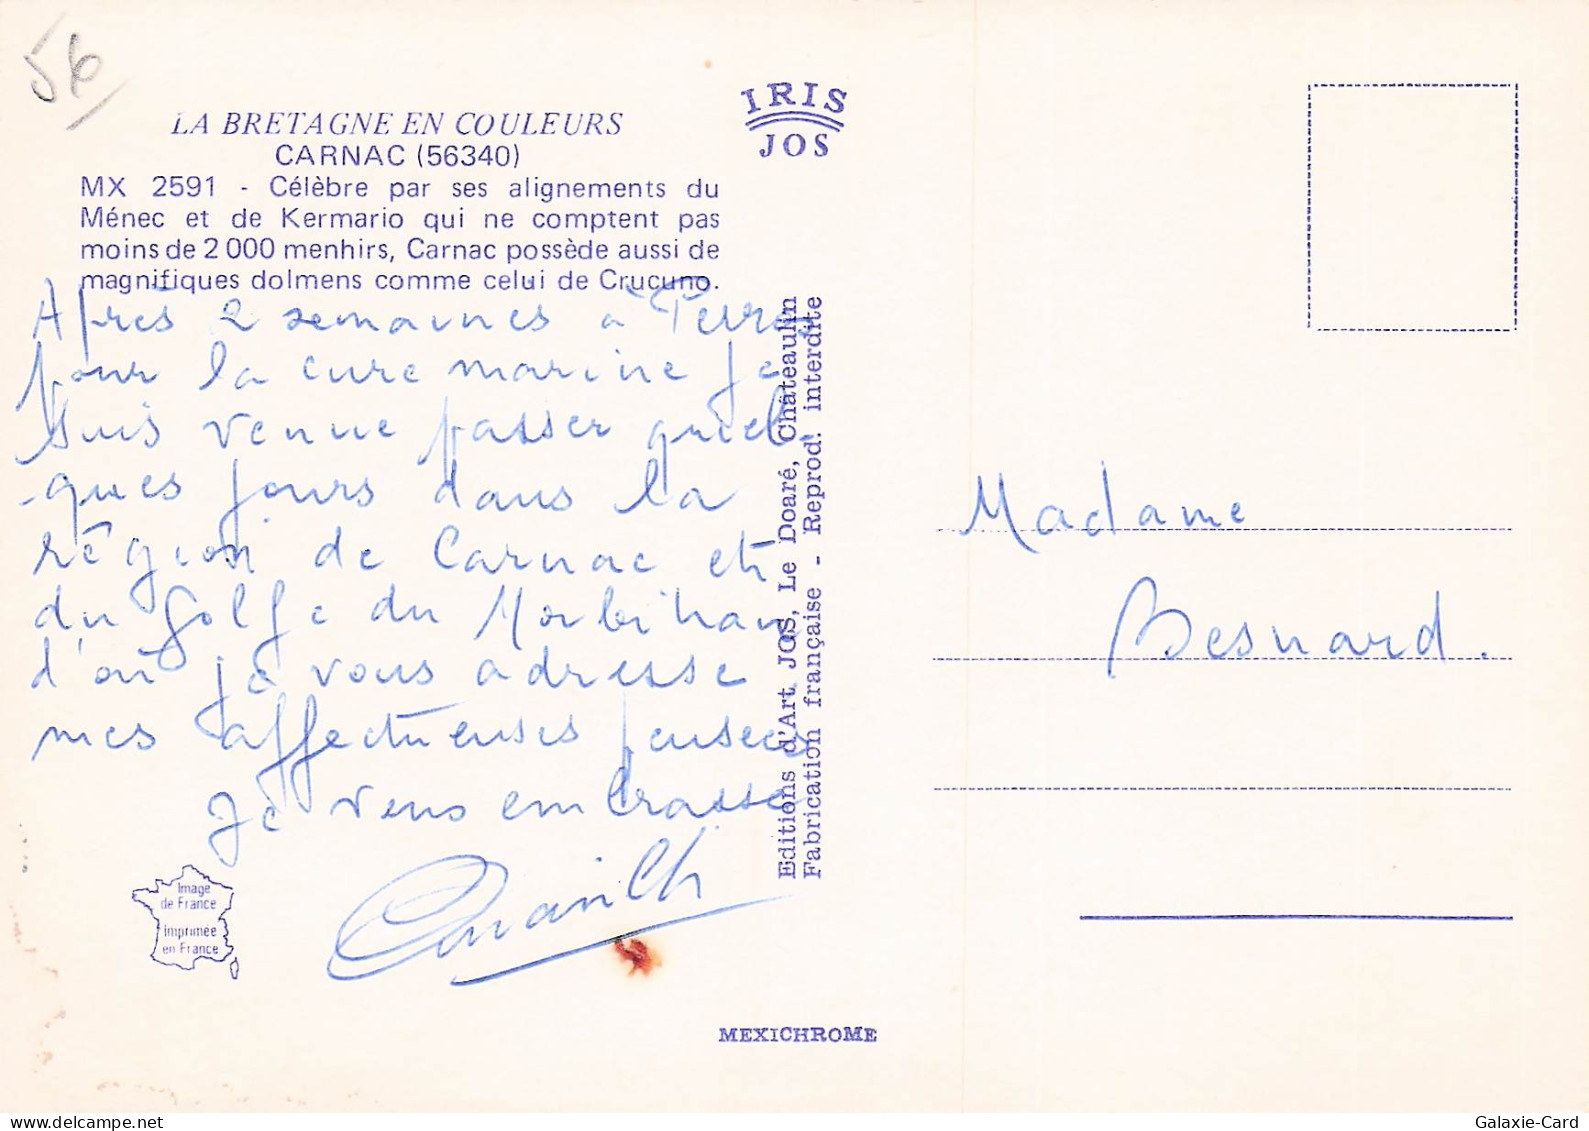 56
LA BRETAGNE EN COULEURS
CARNAC (56340)
MX 2591 - Célèbre par ses alignements du
Ménec et de Kermario qui ne comptent pas
moins de 2 000 menhirs, Carnac possède aussi de
magnifiques dolmens comme celui de Crucuno.
Après 2 semaines à Perros
pour la cure marine je
suis venue passer quel
-ques jours dans la
région de Carnac et
du golfe du Morbihan
d'où je vous adresse
mes affectueuses pensées
Je vous embrasse
Image
de France
imprimée
en France
IRIS
JOS
Editions d'Art JOS, Le Doaré, Châteaulin
Fabrication française - Reprod. interdite
MEXICHROME
Madame
Besnard.
Galaxie-Card